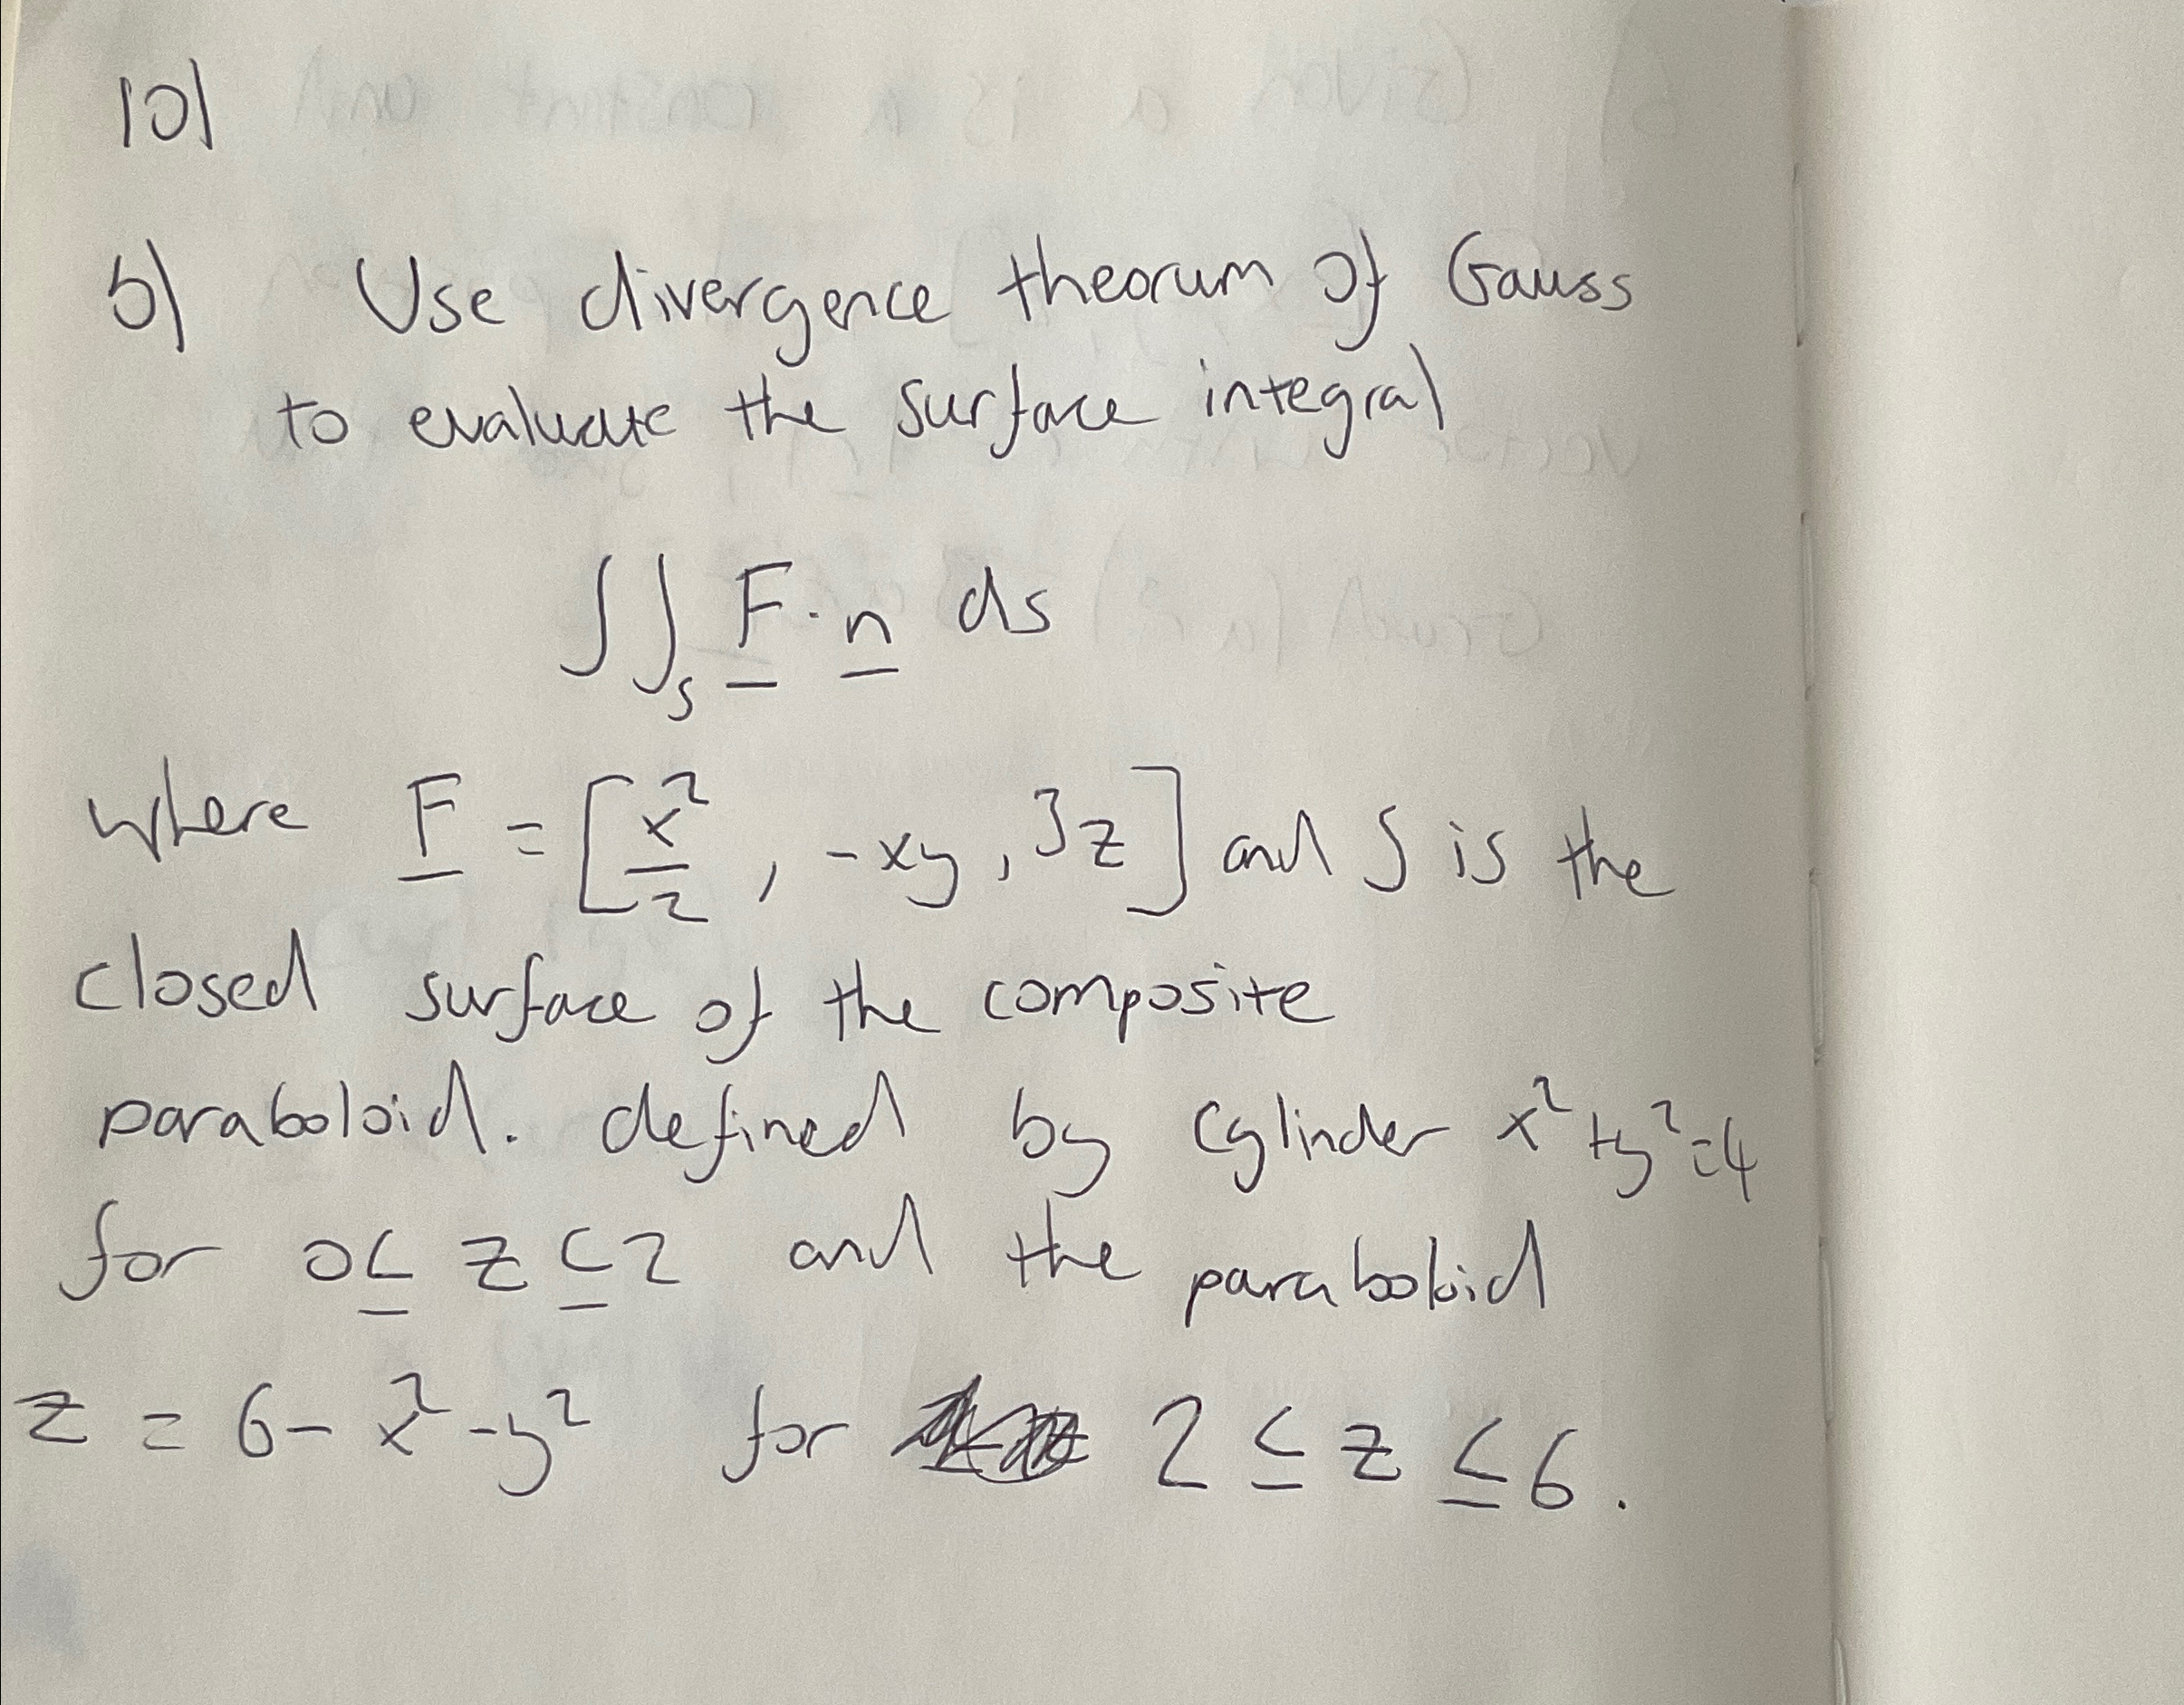 10)
b) Use divergence theorum of Gauss
to evaluate the surface integral
∫∫_S F · n ds
where F = [x²/2, -xy, 3z] and S is the
closed surface of the composite
paraboloid. defined by cylinder x²+y²=4
for 0 ≤ z ≤ 2 and the paraboloid
z = 6 - x² - y² for 2 ≤ z ≤ 6.